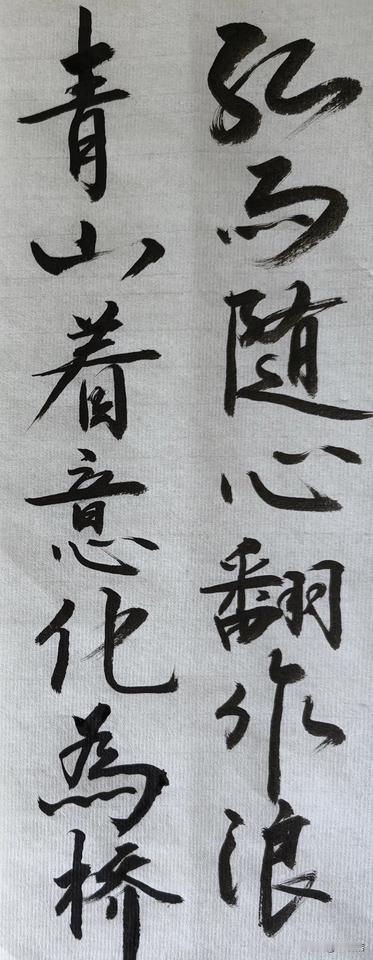 红雨随心翻作浪
青山着意化為桥